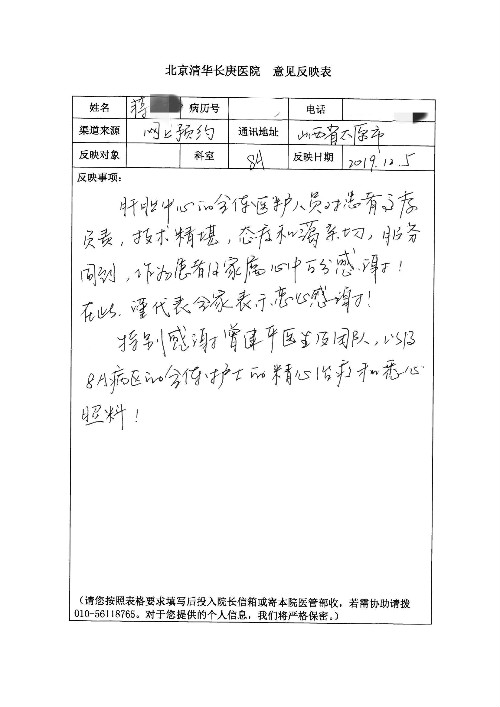 北京清华长庚医院 意见反映表
姓名 蒋 病历号 电话
渠道来源 网上预约 通讯地址 山西省太原市
反映对象 科室 8A 反映日期 2019.12.5
反映事项:
肝胆中心的全体医护人员对患者高度
负责,技术精堪,态度和蔼亲切,服务
周到,作为患者及家属心中百分感谢!
在此,谨代表全家表示衷心感谢!
特别感谢曾建平医生及团队,以及
8A病区的全体护士的精心治疗和悉心
照料!
(请您按照表格要求填写后投入院长信箱或寄本院医管部收,若需协助请拨
010-56118765。对于您提供的个人信息,我们将严格保密。)